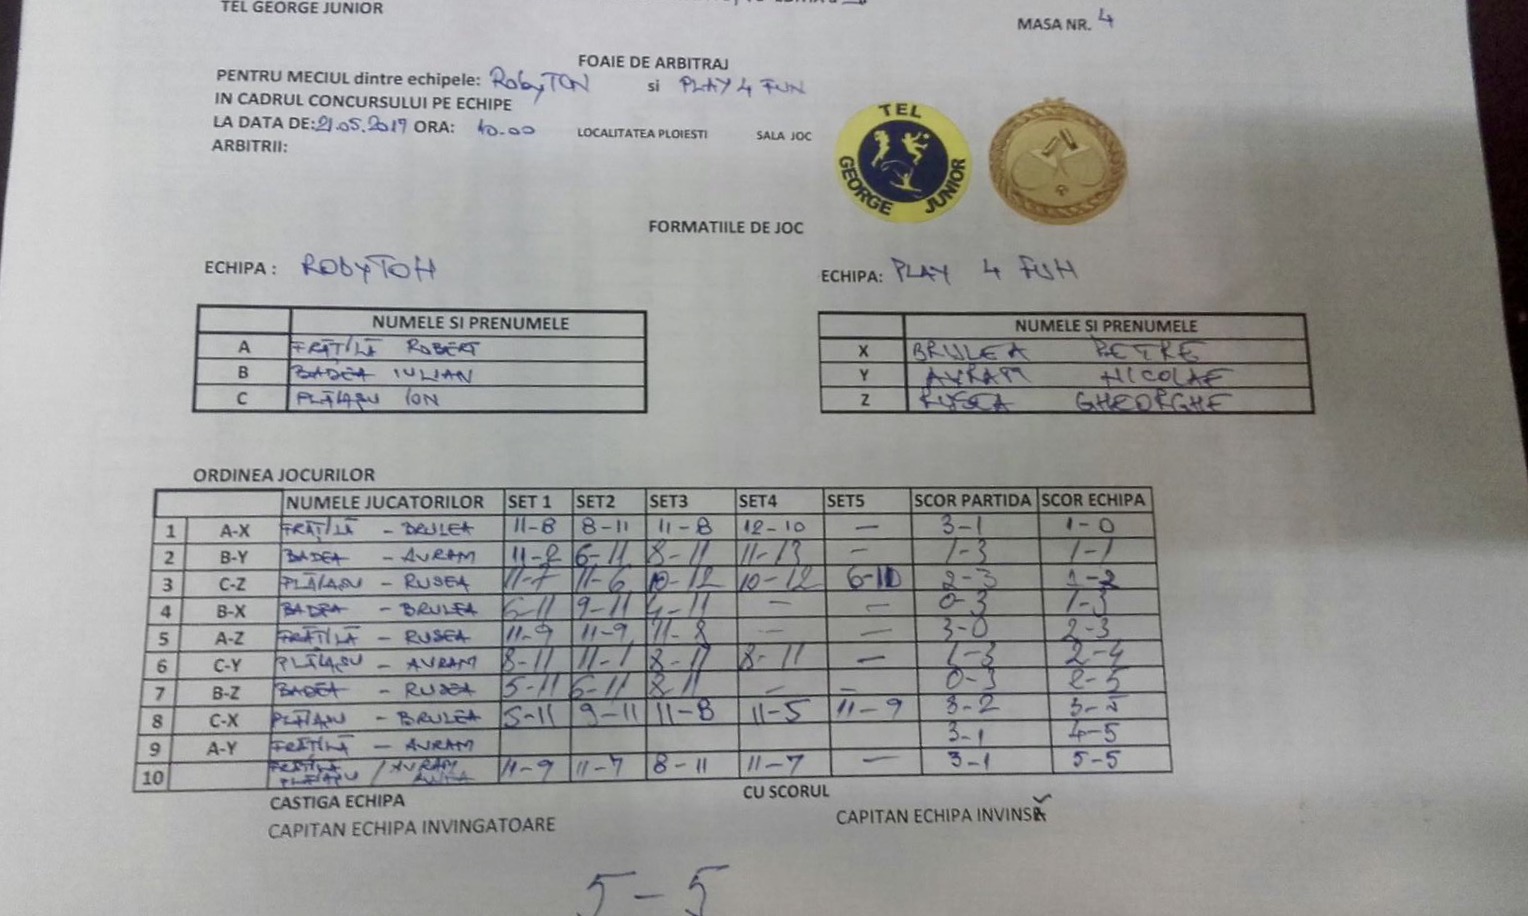 TEL GEORGE JUNIOR
MASA NR. 4
FOAIE DE ARBITRAJ
PENTRU MECIUL dintre echipele: RobyTON si PLAY 4 FUN
IN CADRUL CONCURSULUI PE ECHIPE
LA DATA DE: 21.05.2019 ORA: 10.00 LOCALITATEA PLOIESTI SALA JOC
ARBITRII:
TEL GEORGE JUNIOR
FORMATIILE DE JOC
ECHIPA : RObyTON ECHIPA: PLAY 4 FUN
NUMELE SI PRENUMELE NUMELE SI PRENUMELE
A FRĂȚILĂ ROBERT X BRULEA PETRE
B BADEA IULIAN Y AVRAM NICOLAE
C PLĂIAȘU ION Z RUSEA GHEORGHE
ORDINEA JOCURILOR
NUMELE JUCATORILOR SET 1 SET2 SET3 SET4 SET5 SCOR PARTIDA SCOR ECHIPA
1 A-X FRĂȚILĂ - BRULEA 11-8 8-11 11-8 12-10 — 3-1 1-0
2 B-Y BADEA - AVRAM 11-2 6-11 8-11 11-13 — 1-3 1-1
3 C-Z PLĂIAȘU - RUSEA 11-7 11-6 10-12 10-12 2-3 1-2
4 B-X BADEA - BRULEA 9-11 4-11 — — 0-3 1-3
5 A-Z FRĂȚILĂ - RUSEA 11-9 11-9 11-8 — — 3-0 2-3
6 C-Y PLĂIAȘU - AVRAM 8-11 8-11 8-11 — 1-3 2-4
7 B-Z BADEA - RUSEA 5-11 6-11 8-11 — — 0-3 2-5
8 C-X PLĂIAȘU - BRULEA 5-11 9-11 11-8 11-5 11-9 3-2 3-5
9 A-Y FRĂȚILĂ - AVRAM 3-1 4-5
10 FRĂȚILĂ PLĂIAȘU / AVRAM 11-9 11-7 8-11 11-7 — 3-1 5-5
CASTIGA ECHIPA CU SCORUL
CAPITAN ECHIPA INVINGATOARE CAPITAN ECHIPA INVINSĂ
5-5